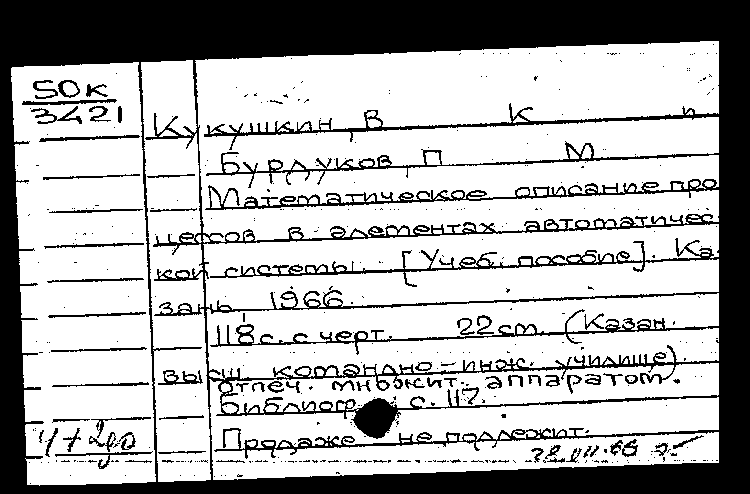 SOк
3421
Кукушкин, В К и
Бурдуков, П М
Математическое описание про
цессов в элементах автоматичес
кой системы. [Учеб. пособие]. Ка-
зань, 1966.
118 с. с черт. 22 cm. (Казан.
высш. командно-инж. училище).
Отпеч. множит. аппаратом.
Библиогр. с. 117.
Продаже не подлежит.